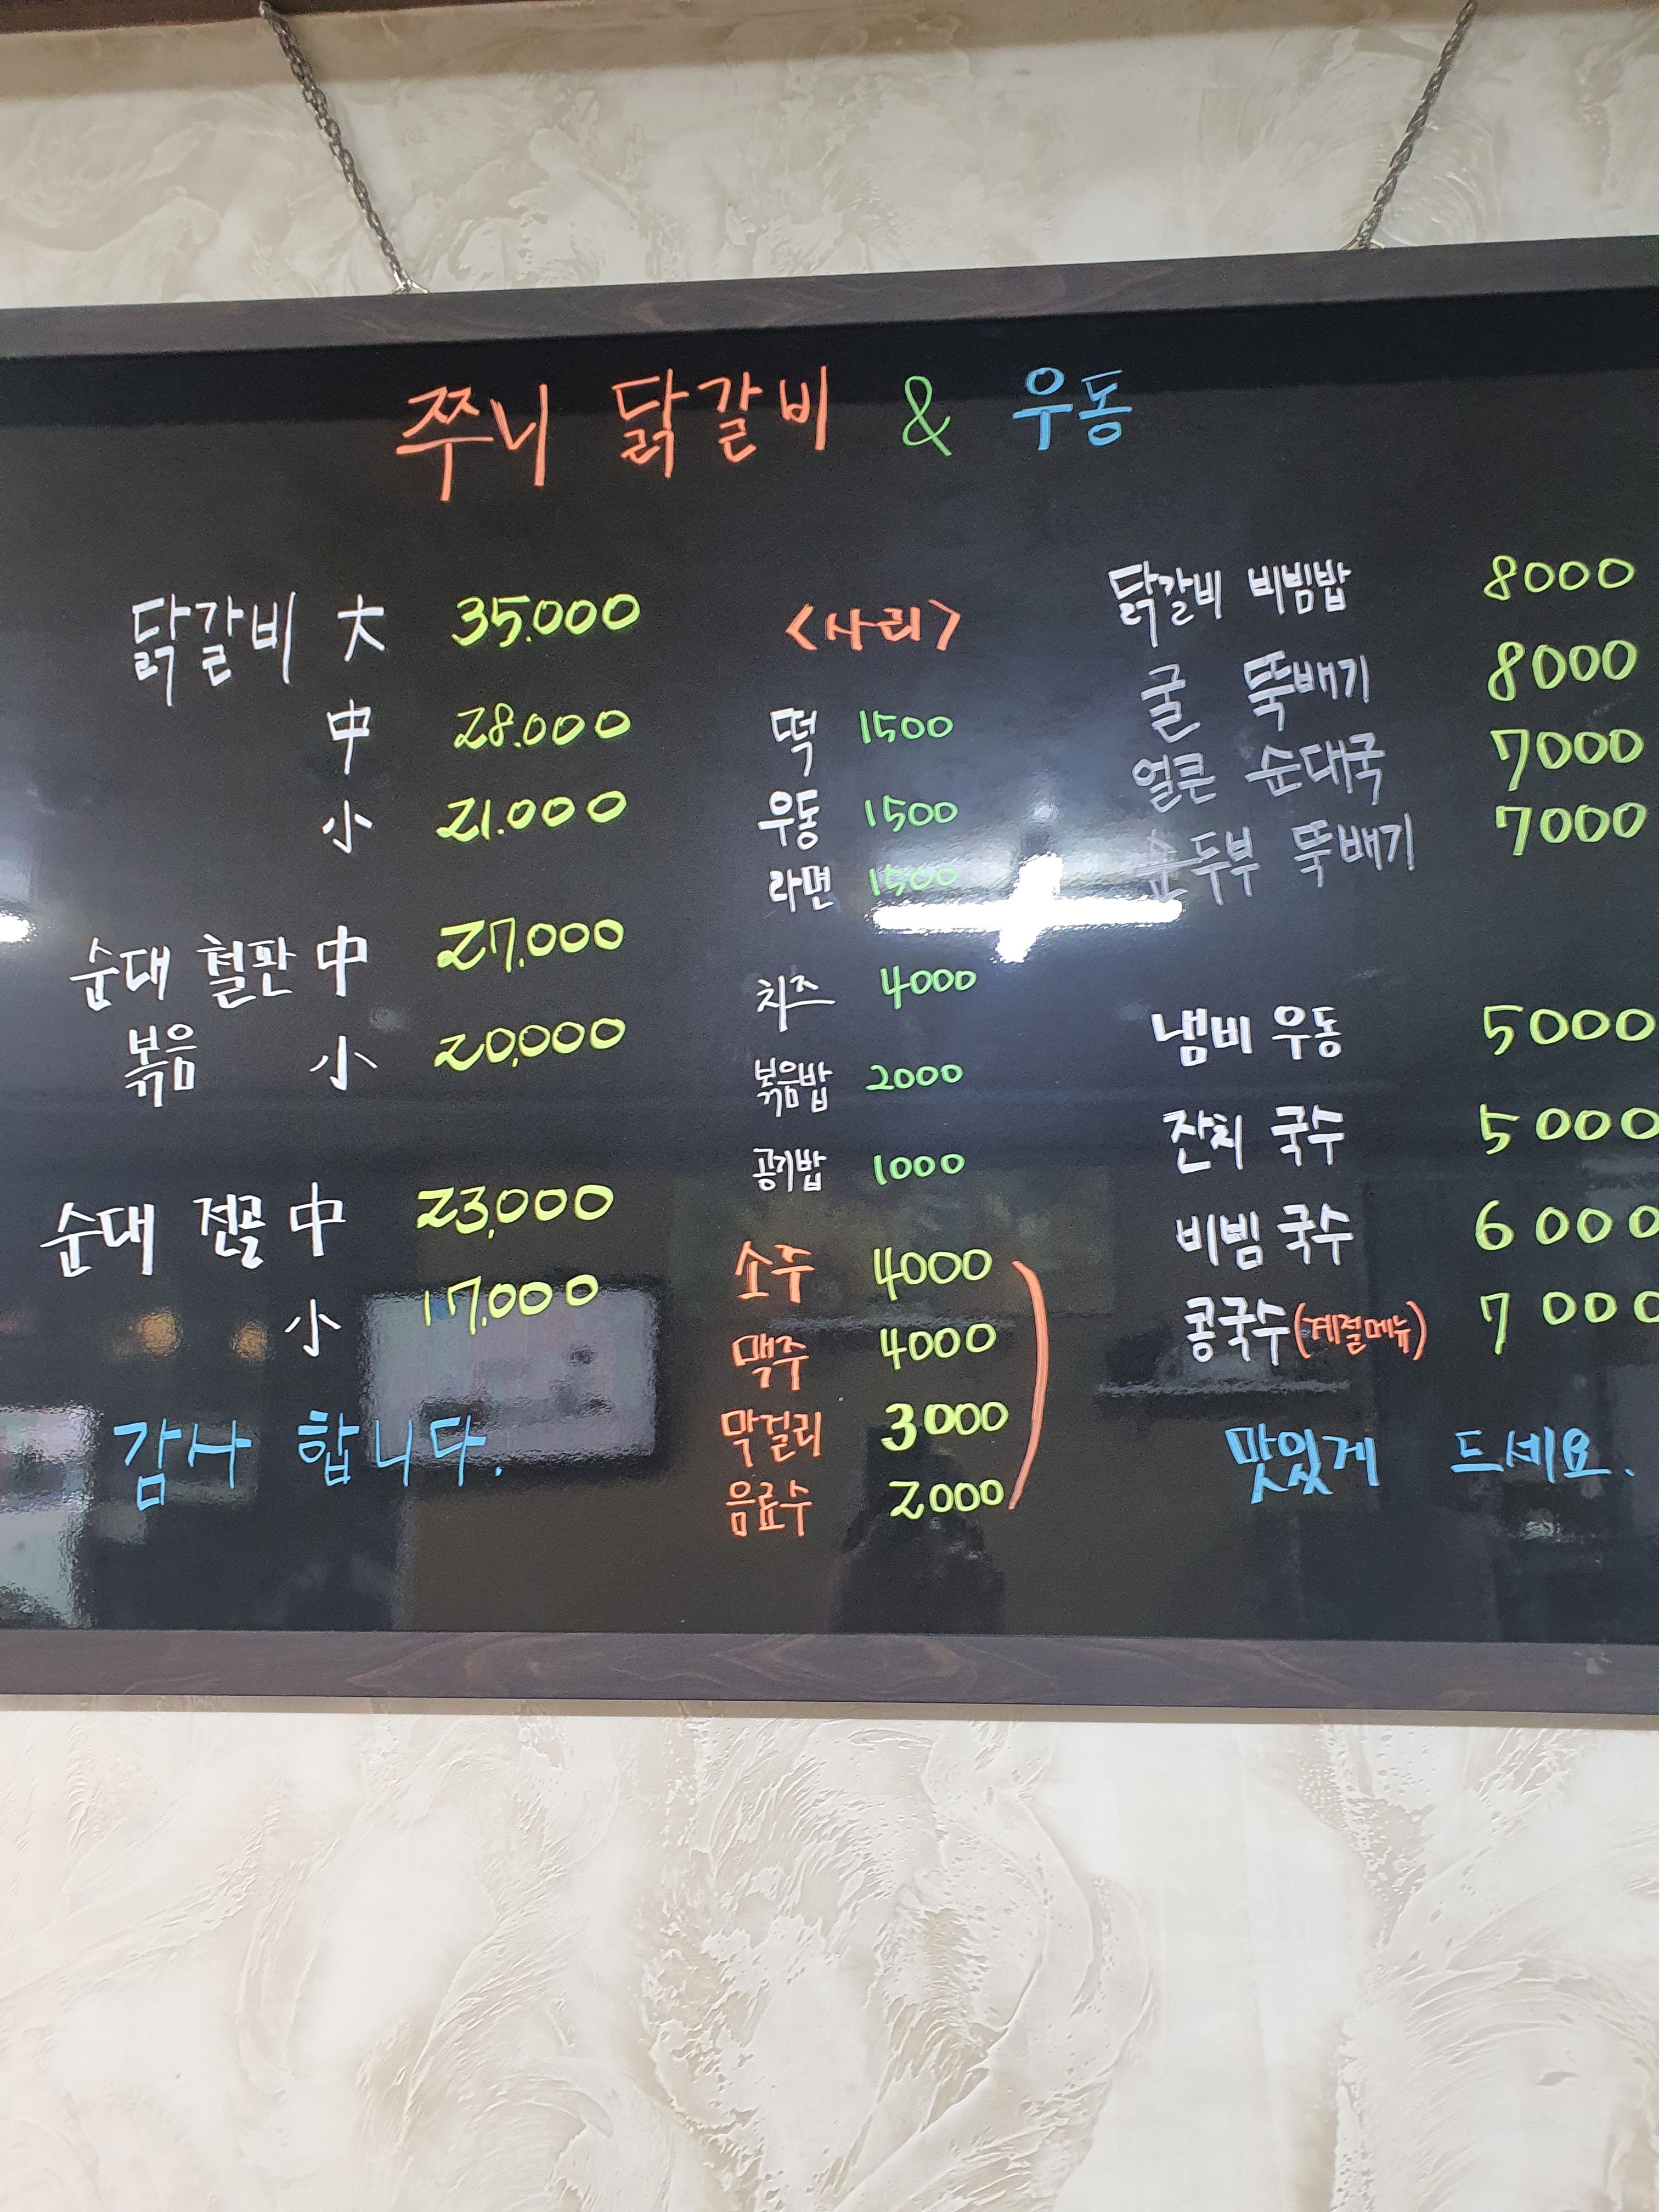 쭈니 닭갈비 & 우동
닭갈비 大 35.000
中 28.000
小 21.000
순대 철판 中 27,000
볶음 小 20,000
순대 전골 中 23,000
小 17,000
감사 합니다.
<사리>
떡 1500
우동 1500
라면 1500
치즈 4000
볶음밥 2000
공기밥 1000
소주 4000
맥주 4000
막걸리 3000
음료수 2000
닭갈비 비빔밥 8000
굴 뚝배기 8000
얼큰 순대국 7000
순두부 뚝배기 7000
냄비 우동 5000
잔치 국수 5000
비빔 국수 6000
콩국수 (계절메뉴) 7000
맛있게 드세요.